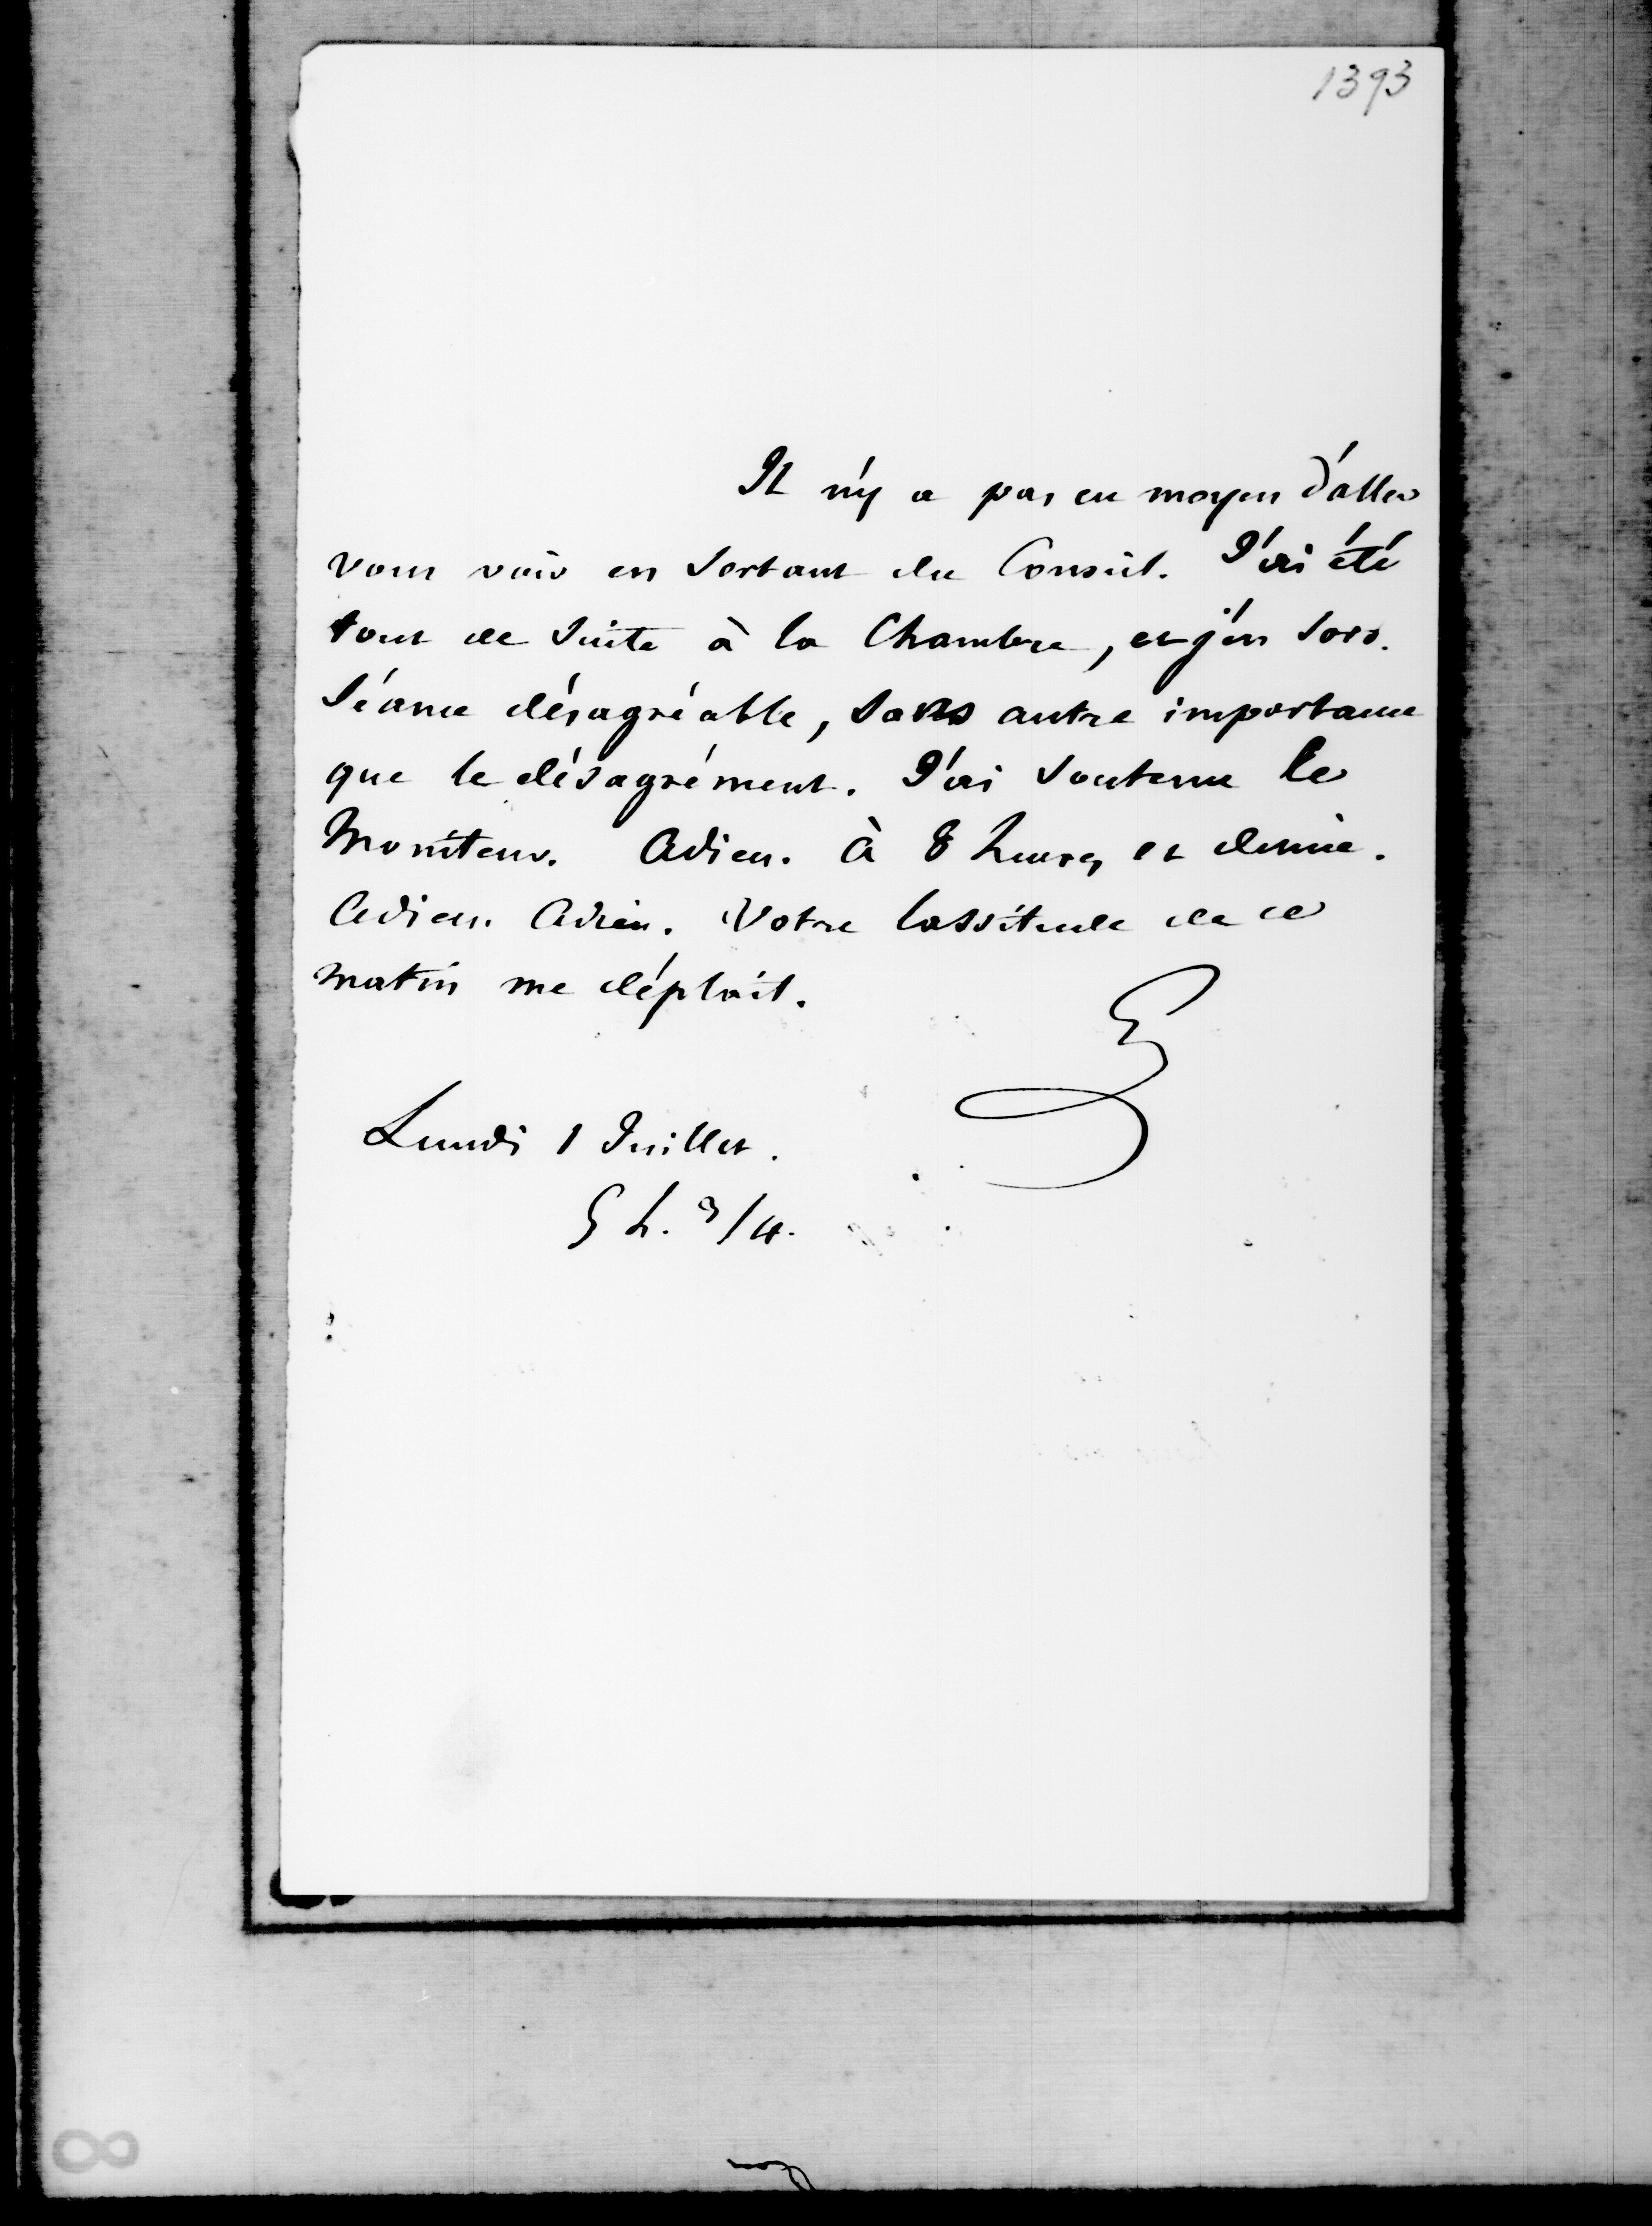 1393
Il n'y a pas eu moyen d'aller
vous voir en sortant du Conseil. J'ai été
tout de suite à la Chambre, et j'en sors.
Séance désagréable, sans autre importance
que le désagrément. J'ai soutenu le
Moniteur. Adieu. à 8 heures et demie.
Adieu. Adieu. Votre lassitude de ce
matin me déplait.
Lundi 1 Juillet.
5 h. 3/4.